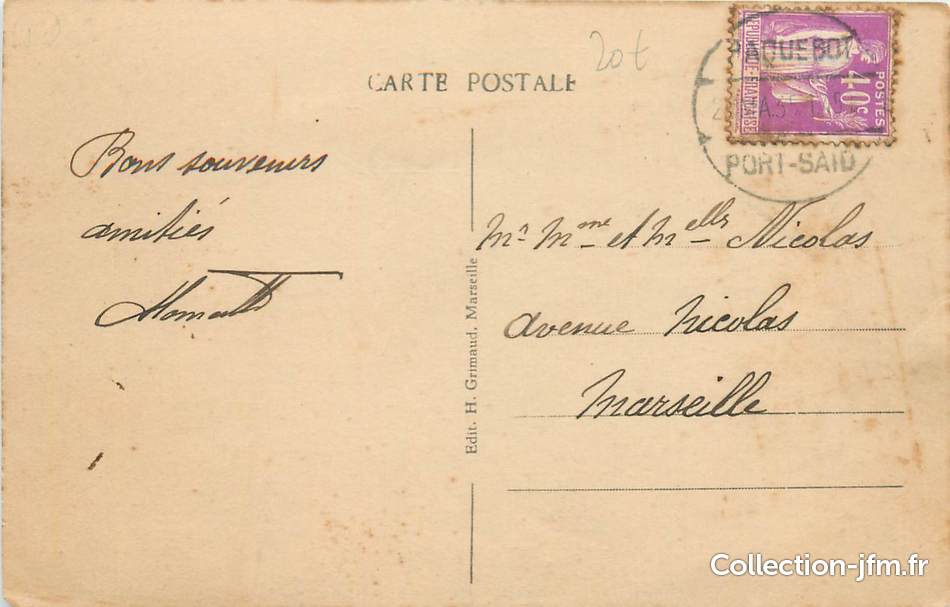 20t
CARTE POSTALE
PAQUEBOT
PORT-SAID
REPUBLIQUE FRANÇAISE
POSTES
40c
Bons souvenirs
amitiés
Edit. H. Grimaud, Marseille
Mr Mme et Melle Nicolas
avenue Nicolas
Marseille
Collection-jfm.fr